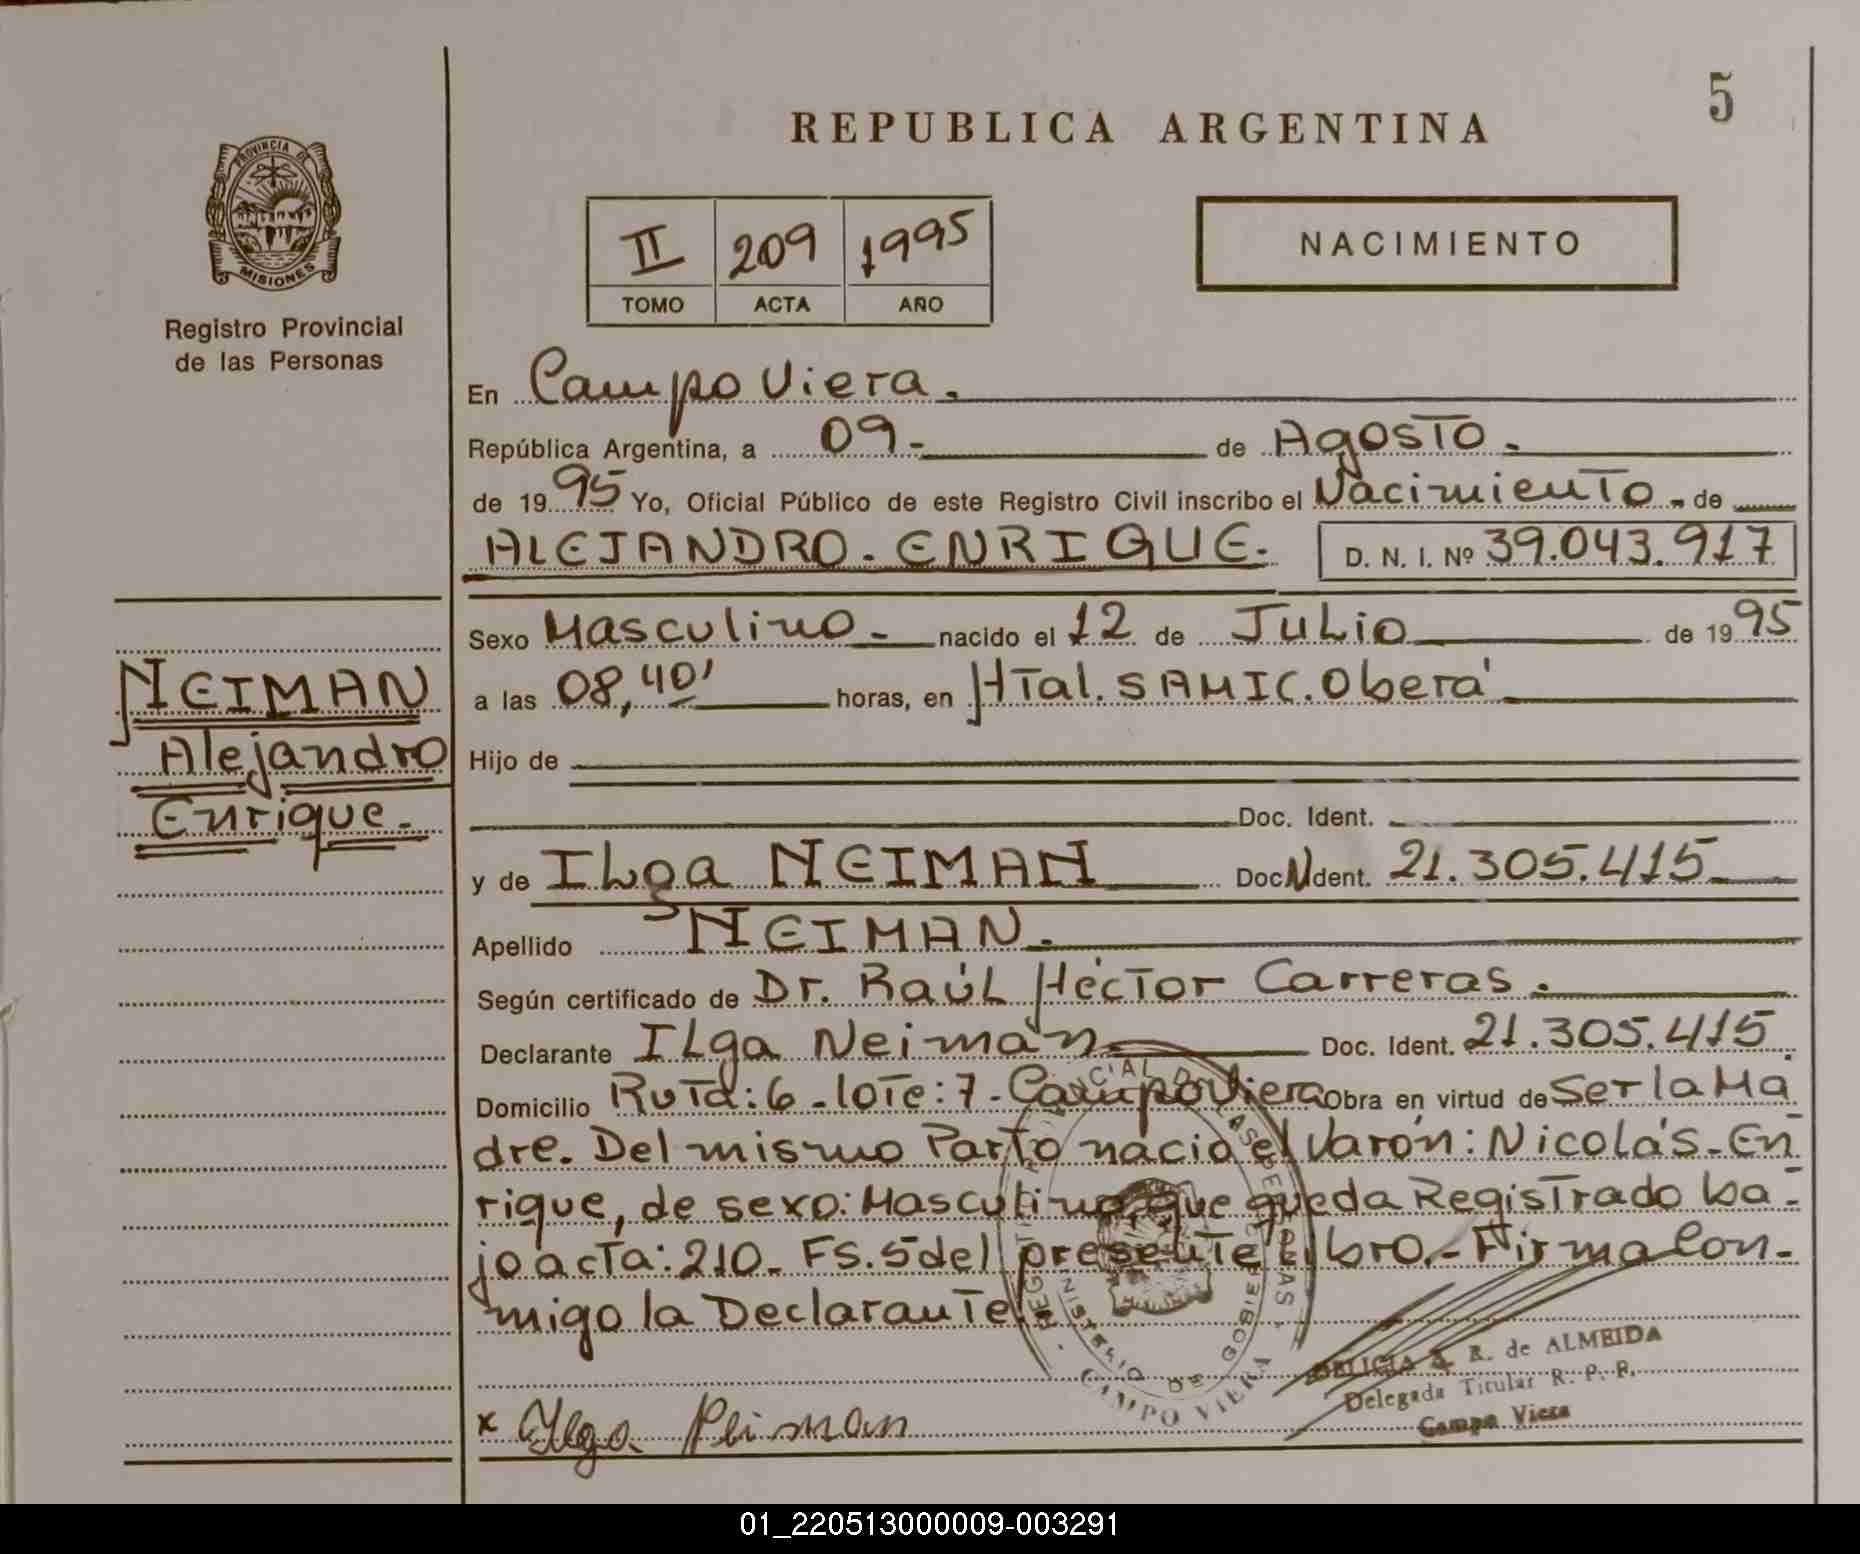 5
REPUBLICA ARGENTINA
PROVINCIA DE
MISIONES
Registro Provincial
de las Personas
II 209 1995
TOMO ACTA AÑO
NACIMIENTO
En Campo Viera.
República Argentina, a 09- de Agosto.
de 1995 Yo, Oficial Público de este Registro Civil inscribo el Nacimiento. de
ALEJANDRO. ENRIQUE. D. N. I. Nº 39.043.917
Sexo Masculino. nacido el 12 de Julio de 1995
NEIMAN
Alejandro
Enrique.
a las 08,40' horas, en HTal. SAMIC. Oberá
Hijo de
Doc. Ident.
y de ILga NEIMAN Doc Ident. 21.305.415
Apellido NEIMAN.
Según certificado de Dr. Raúl Héctor Carreras.
Declarante ILga Neiman Doc. Ident. 21.305.415
Domicilio Ruta: 6 - lote: 7 - Campo Viera Obra en virtud de Ser la Ma
dre. Del mismo Parto nació el Varón: Nicolás - En
rique, de sexo: Masculino que queda Registrado ba-
jo acta: 210 - FS. 5 del presente libro.- Firma Con-
migo la Declarante.
MINISTERIO DE GOBIERNO
CAMPO VIERA
x Ilga Neiman
DELICIA R. de ALMEIDA
Delegada Titular R. P. P.
Campo Viera
01_220513000009-003291